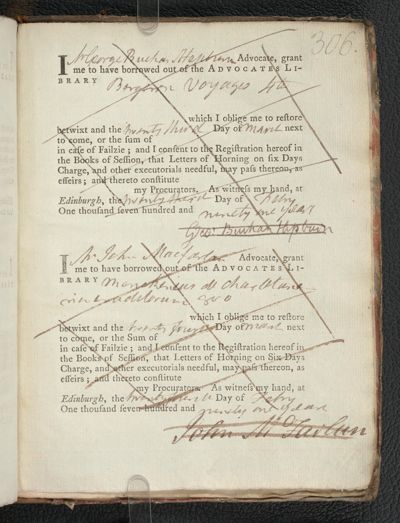 306.
I Mr George Buchan Hepburn Advocate, grant
me to have borrowed out of the ADVOCATES LI-
BRARY Bergeron Voyages 4to
which I oblige me to reſtore
betwixt and the twenty third Day of March next
to come, or the ſum of
in caſe of Failzie; and I conſent to the Regiſtration hereof in
the Books of Seſſion, that Letters of Horning on ſix Days
Charge, and other executorials needful, may paſs thereon, as
effeirs; and thereto conſtitute
my Procurators. As witneſs my hand, at
Edinburgh, the twenty third Day of Febry
One thouſand ſeven hundred and ninety one year
Geo. Buchan Hepburn
I Mr John Macfarlan Advocate, grant
me to have borrowed out of the ADVOCATES LI-
BRARY de
8vo
which I oblige me to reſtore
betwixt and the twenty Day of March next
to come, or the Sum of
in caſe of Failzie; and I conſent to the Regiſtration hereof in
the Books of Seſſion, that Letters of Horning on Six Days
Charge, and other executorials needful, may paſs thereon, as
effeirs; and thereto conſtitute
my Procurators. As witneſs my hand, at
Edinburgh, the Day of Febry
One thouſand ſeven hundred and ninety one year
John McFarlan